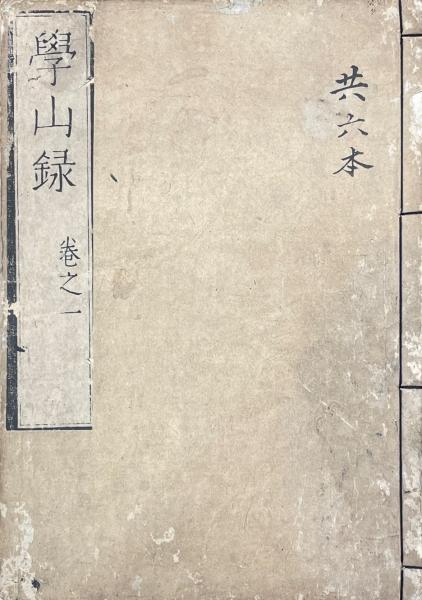 共六本
學山録
卷之一